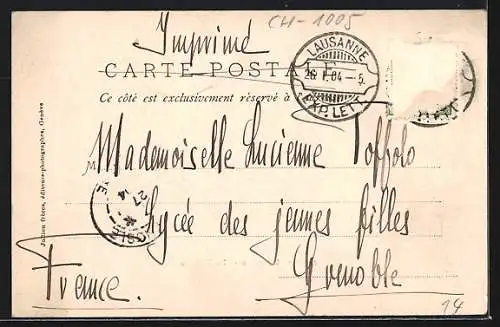 CH-1005
Imprimé
CARTE POSTALE
Ce côté est exclusivement réservé à
LAUSANNE
26.I.04-5
EXP. LETT.
Mademoiselle Lucienne Toffolo
Lycée des jeunes filles
Grenoble
France.
Jullien frères, éditeurs-photographes, Genève
14